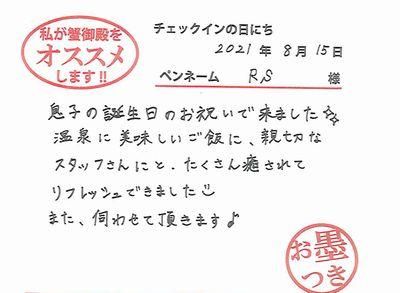 私が蟹御殿を
オススメ
します!!
チェックインの日にち
2021年 8月 15日
ペンネーム R.S 様
息子の誕生日のお祝いで来ました☆
温泉に美味しいご飯に、親切な
スタッフさんにと、たくさん癒されて
リフレッシュできました
また、伺わせて頂きます♪
お墨
つき